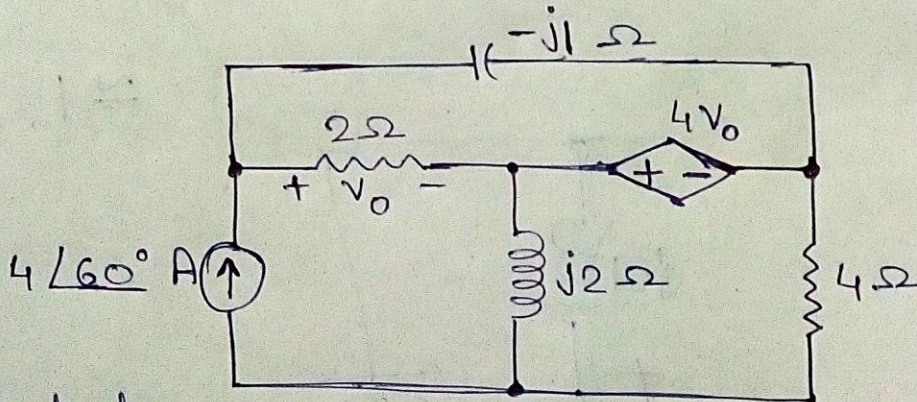 -j1 Ω
2Ω
4V₀
+ V₀ -
+ -
4∠60° A
j2 Ω
4Ω